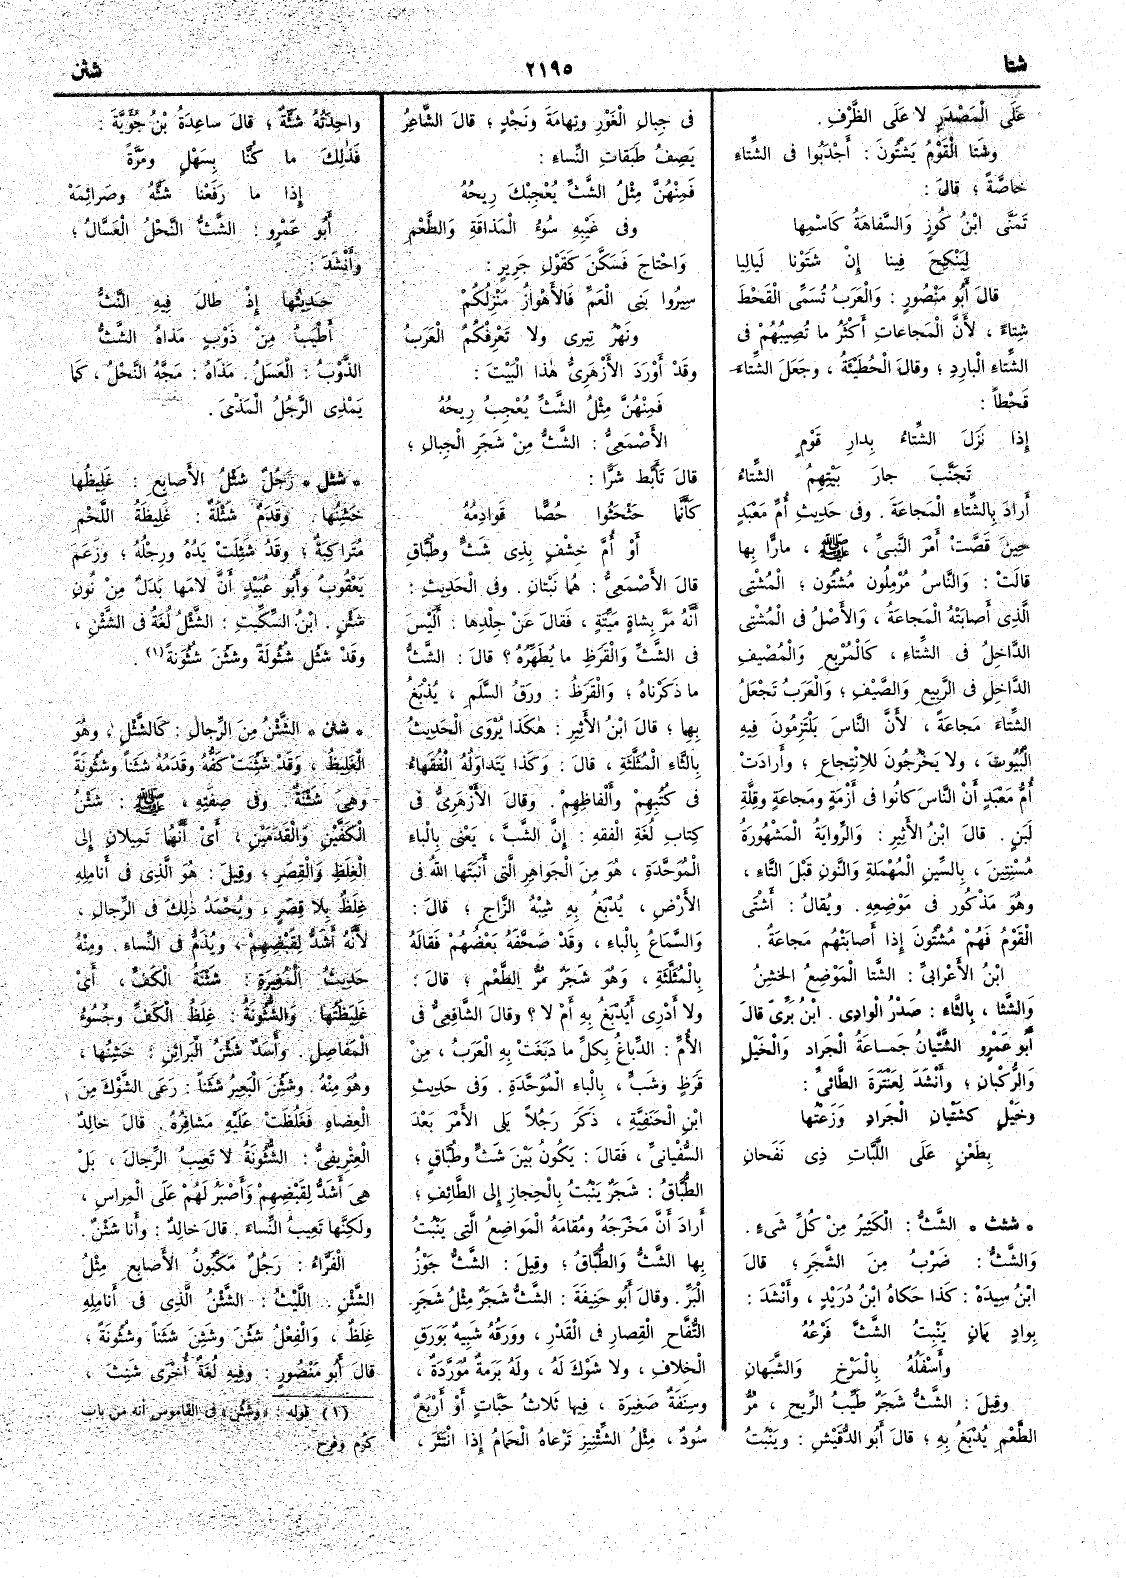 شتا
٢١٩٥
شثن
عَلَى الْمَصْدَرِ لا عَلَى الظَّرْفِ .
وشَتا الْقَوْمُ يَشْتُونَ : أَجْدَبُوا فى الشِّتاءِ
خاصَّةً ؛ قالَ :
تَمَنَّى ابْنُ كُوزٍ وَالسَّفاهَةُ كَاسْمِها
لِيَنْكِحَ فِينا إِنْ شَتَوْنا لَيالِيا
قالَ أَبُو مَنْصُورٍ : وَالْعَرَبُ تُسَمِّى الْقَحْطَ
شِتاءً ، لأَنَّ الْمَجاعاتِ أَكْثَرُ ما تُصِيبُهُمْ فى
الشِّتاءِ الْبارِدِ ؛ وقالَ الْحُطَيْئَةُ ، وجَعَلَ الشِّتاءَ
قَحْطاً :
إِذا نَزَلَ الشِّتاءُ بِدارِ قَوْمٍ
تَجَنَّبَ جارَ بَيْتِهِمُ الشِّتاءُ
أَرادَ بِالشِّتاءِ الْمَجاعَةَ . وفى حَدِيثِ أُمِّ مَعْبَدٍ
حِينَ قَصَّتْ أَمْرَ النَّبِىِّ ، ﷺ ، مارًّا بِها
قالَتْ : وَالنَّاسُ مُرْمِلُون مُشْتُون ؛ الْمُشْتِى
الَّذِى أَصابَتْهُ الْمَجاعَةُ ، وَالأَصْلُ فى الْمُشْتِى
الدَّاخِلُ فى الشِّتاءِ ، كَالْمُرْبِعِ وَالْمُصْيِفِ
الدَّاخِلِ فى الرَّبِيعِ وَالصَّيْفِ ؛ وَالْعَرَبُ تَجْعَلُ
الشِّتاءَ مَجاعَةً ، لأَنَّ النَّاسَ يَلْتَزِمُونَ فِيهِ
الْبُيُوتَ ، ولا يَخْرُجُونَ لِلاِنْتِجاعِ ؛ وأَرادَتْ
أُمُّ مَعْبَدٍ أَنَّ النَّاسَ كانُوا فى أَزْمَةٍ ومَجاعَةٍ وقِلَّةِ
لَبَنٍ . قالَ ابْنُ الأَثِيرِ : وَالرِّوايَةُ الْمَشْهُورَةُ
مُسْنِتِينَ ، بِالسِّينِ الْمُهْمَلَةِ وَالنُّونِ قَبْلَ التَّاءِ ،
وهُوَ مَذْكُور فى مَوْضِعِهِ . ويُقالُ : أَشْتَى
الْقَوْمُ فَهُمْ مُشْتُونَ إِذا أَصابَتْهُم مَجاعَةُ .
ابْنُ الأَعْرابِىِّ : الشَّتا الْمَوْضِعُ الخَشِنُ
وَالشَّثا ، بِالثَّاءِ : صَدْرُ الْوادِى . ابْنُ بَرِّىّ قالَ
أَبُو عَمْرٍو الشَّتْيانُ جَمـاعَةُ الْجَرادِ وَالْخَيْلِ
وَالرُّكْبانِ ؛ وأَنْشَدَ لِعَنْتَرَةَ الطَّائِىِّ :
وخَيْلٍ كشَتْيانِ الْجَرادِ وَزَعْتُها
بِطَعْنٍ عَلَى اللَّبَّاتِ ذِى نَفَحانِ
* شثث * الشَّثُّ : الْكَثِيرُ مِنْ كُلِّ شَىْءٍ .
وَالشَّثُّ : ضَرْبٌ مِنَ الشَّجَرِ ؛ قالَ
ابْنُ سِيدَهْ : كَذا حَكاهُ ابْنُ دُرَيْدٍ ، وأَنْشَدَ :
بِوادٍ يَمانٍ يُنْبِتُ الشَّثَّ فَرْعُهُ
وأَسْفَلُهُ بِالْمَرْخِ وَالشَّبَهانِ
وقِيلَ : الشَّثُّ شَجَرٌ طَيِّبُ الرِّيحِ ، مُرُّ
الطَّعْمِ يُدْبَغُ بِهِ ؛ قالَ أَبُو الدُّقَيْشِ : ويَنْبُتُ
فى جِبالِ الْغَوْرِ وتِهامَةَ ونَجْدٍ ؛ قالَ الشَّاعِرُ
يَصِفُ طَبَقاتِ النِّساءِ :
فَمِنْهُنَّ مِثْلُ الشَّثِّ يُعْجِبْكَ رِيحُهُ
وفى غَيْبِهِ سُوءُ الْمَذاقَةِ وَالطَّعْمِ
وَاحْتاجَ فَسَكَّنَ كَقَوْلِ جَرِيرٍ :
سِيرُوا بَنِى الْعَمِّ فَالأَهْوازُ مَنْزِلُكُمْ
ونَهْرُ تِيرى ولا تَعْرِفْكُمُ الْعَرَبُ
وقَدْ أَوْرَدَ الأَزْهَرِىُّ هٰذا الْبَيْتَ :
فَمِنْهُنَّ مِثْلُ الشَّثِّ يُعْجِبُ رِيحُهُ
الأَصْمَعِىُّ : الشَّثُّ مِنْ شَجَرِ الْجِبالِ ؛
قالَ تَأَبَّطَ شَرًّا :
كَأَنَّما حَثْحَثُوا حُصًّا قَوادِمُهُ
أَوْ أُمَّ خِشْفٍ بِذِى شَثٍّ وطُبَّاقِ
قالَ الأَصْمَعِىُّ : هُما نَبْتانِ . وفى الْحَدِيثِ :
أَنَّهُ مَرَّ بِشاةٍ مَيِّتَةٍ ، فَقالَ عَنْ جِلْدِها : أَلَيْسَ
فى الشَّثِّ وَالْقَرَظِ ما يُطَهِّرُهُ ؟ قالَ : الشَّثُّ
ما ذَكَرْناهُ ؛ وَالْقَرَظُ : ورَقُ السَّلَمِ ، يُدْبَغُ
بِها ؛ قالَ ابْنُ الأَثِيرِ : هٰكَذا يُرْوَى الْحَدِيثُ
بِالثَّاءِ الْمُثَلَّثَةِ ، قالَ : وَكَذا يَتَداوَلُهُ الْفُقَهاءُ
فى كُتُبِهِمْ وأَلْفاظِهِمْ . وقالَ الأَزْهَرِىُّ فى
كِتابِ لُغَةِ الْفِقهِ : إِنَّ الشَّبَّ ، يَعْنِى بِالْباءِ
الْمُوَحَّدَةِ ، هُوَ مِنَ الْجَواهِرِ الَّتِى أَنْبَتَها اللهُ فى
الأَرْضِ ، يُدْبَغُ بِهِ شِبْهُ الزَّاجِ ؛ قالَ :
وَالسَّماعُ بِالْباءِ ، وَقَدْ صَحَّفَهُ بَعْضُهُمْ فَقالَهُ
بِالْمُثَلَّثَةِ ، وَهُوَ شَجَرٌ مُرُّ الطَّعْمِ ؛ قالَ :
ولا أَدْرِى أَيُدْبَغُ بِهِ أَمْ لا ؟ وقالَ الشَّافِعِىُّ فى
الأُمِّ : الدِّباغُ بِكلِّ ما دَبَغَتْ بِهِ الْعَرَبُ ، مِنْ
قَرَظٍ وشَبٍّ ، بِالْباءِ الْمُوَحَّدَةِ . وفى حَدِيثِ
ابْنِ الْحَنَفِيَّةِ ، ذَكَرَ رَجُلاً يَلِى الأَمْرَ بَعْدَ
السُّفْيانِىِّ ، فَقالَ : يَكُونُ بَيْنَ شَثٍّ وطُبَّاقٍ ؛
الطُّبَّاقُ : شَجَرٌ يَنْبُتُ بِالْحِجازِ إِلى الطَّائِفِ ؛
أَرادَ أَنَّ مَخْرَجَهُ ومُقامَهُ الْمَواضِعُ الَّتِى يَنْبُتُ
بِها الشَّثُّ وَالطُّبَّاقُ ؛ وقِيلَ : الشَّثُّ جَوْزُ
الْبَرِّ . وقالَ أَبُو حَنِيفَةَ : الشَّثُّ شَجَرٌ مِثْلُ شَجَرِ
التُّفَّاحِ الْقِصارِ فى الْقَدْرِ ، ووَرَقُهُ شَبِيهٌ بِوَرَقِ
الْخلافِ ، ولا شَوْكَ لَهُ ، ولَهُ بَرَمَةٌ مُوَرَّدَةٌ ،
وسِنَفَةٌ صَغِيرَة ، فِيها ثَلاثُ حَبَّاتٍ أَوْ أَرْبَعٌ
سُودٌ ، مِثْلُ الشِّئْنِيزِ تَرْعاهُ الْحَمامُ إِذا انْتَثَرَ ،
واحِدَتُهُ شَثَّةٌ ؛ قالَ ساعِدَةُ بْنُ جُؤَيَّةَ :
فَذٰلِكَ ما كُنَّا بِسَهْلٍ ومَرَّةً
إِذا ما رَفَعْنا شَثَّهُ وصَرائِمَهْ
أَبُو عَمْرٍو : الشَّثُّ النَّحْلُ الْعَسَّالُ ؛
وأَنْشَدَ :
حَدِيثُها إِذْ طالَ فِيهِ النَّثُّ
أَطْيَبُ مِنْ ذَوْبٍ مَذاهُ الشَّثُّ
الذَّوْبُ : الْعَسَلُ . مَذاهُ : مَجَّهُ النَّحْلُ ، كَما
يَمْذِى الرَّجُلُ الْمَذْىَ .
* شثل * رَجُلٌ شَثْلُ الأَصابِعِ : غَلِيظُها
خَشِنُها . وقَدَمٌ شَثْلَةٌ : غَلِيظَةُ اللَّحْمِ
مُتَراكِبَةٌ ؛ وقَدْ شَثِلَتْ يَدُهُ ورِجْلُهُ ؛ وزَعَمَ
يَعْقُوبُ وأَبُو عُبَيْدٍ أَنَّ لامَها بَدَلٌ مِنْ نُونِ
شَثْنٍ . ابْنُ السِّكِّيتِ : الشَّثْلُ لُغَةٌ فى الشَّثْنِ ،
وقَدْ شَثُلَ شُثُولَةً وشَثُنَ شُثُونَةً (١) .
* شثن * الشَّثْنُ مِنَ الرِّجالِ : كَالشَّثْلِ ، وهُوَ
الْغَلِيظُ ، وقَدْ شَثُنَتْ كَفُّهُ وقَدَمُهُ شَثَناً وشُثُونَةً
وهِىَ شَثْنَةٌ . وفى صِفَتِهِ ، ﷺ : شَثْنُ
الْكَفَّيْنِ وَالْقَدَمَيْنِ ، أَىْ أَنَّهُما تَمِيلانِ إِلى
الْغِلَظِ وَالْقِصَرِ ؛ وقِيلَ : هُوَ الَّذِى فى أَنامِلِهِ
غِلَظٌ بِلا قِصَرٍ ، ويُحْمَدُ ذٰلِكَ فى الرِّجالِ ،
لأَنَّهُ أَشَدُّ لِقَبْضِهِمْ ، ويُذَمُّ فى النِّساءِ . ومِنْهُ
حَدِيثُ الْمُغِيرَةِ : شَثْنَةُ الْكَفِّ ، أَىْ
غَلِيظَتُها . وَالشُّثُونَةُ : غِلَظُ الْكَفِّ وجُسُوءُ
الْمَفاصِلِ . وأَسَدٌ شَثْنُ الْبَراثِنِ : خَشِنُها ،
وهُوَ مِنْهُ . وشَثِنَ الْبَعِيرُ شَثَناً : رَعَى الشَّوْكَ مِنَ
الْعِضاهِ فَغَلُظَتْ عَلَيْهِ مَشافِرُهُ . قالَ خالِدٌ
الْعِتْرِيفِىُّ : الشُّثُونَةُ لا تَعِيبُ الرِّجالَ ، بَلْ
هِىَ أَشَدُّ لِقَبْضِهِمْ وَأَصْبَرُ لَهُمْ عَلَى الْمِراسِ ،
ولكِنَّها تَعِيبُ النِّساءَ . قالَ خالِدٌ : وأَنا شَثْنٌ .
الْفَرَّاءُ : رَجُلٌ مَكْبُونُ الأَصابِعِ مِثْلُ
الشَّثْنِ . اللَّيْثُ : الشَّثْنُ الَّذِى فى أَنامِلِهِ
غِلَظٌ ، وَالْفِعْلُ شَثُنَ وشَثِنَ شَثَناً وشُثُونَةً ؛
قالَ أَبُو مَنْصُورٍ : وفِيهِ لُغَةٌ أُخْرَى شَنِثَ ،
(١) قوله : «وشثن» فى القاموس أنه من باب
كرم وفرح .